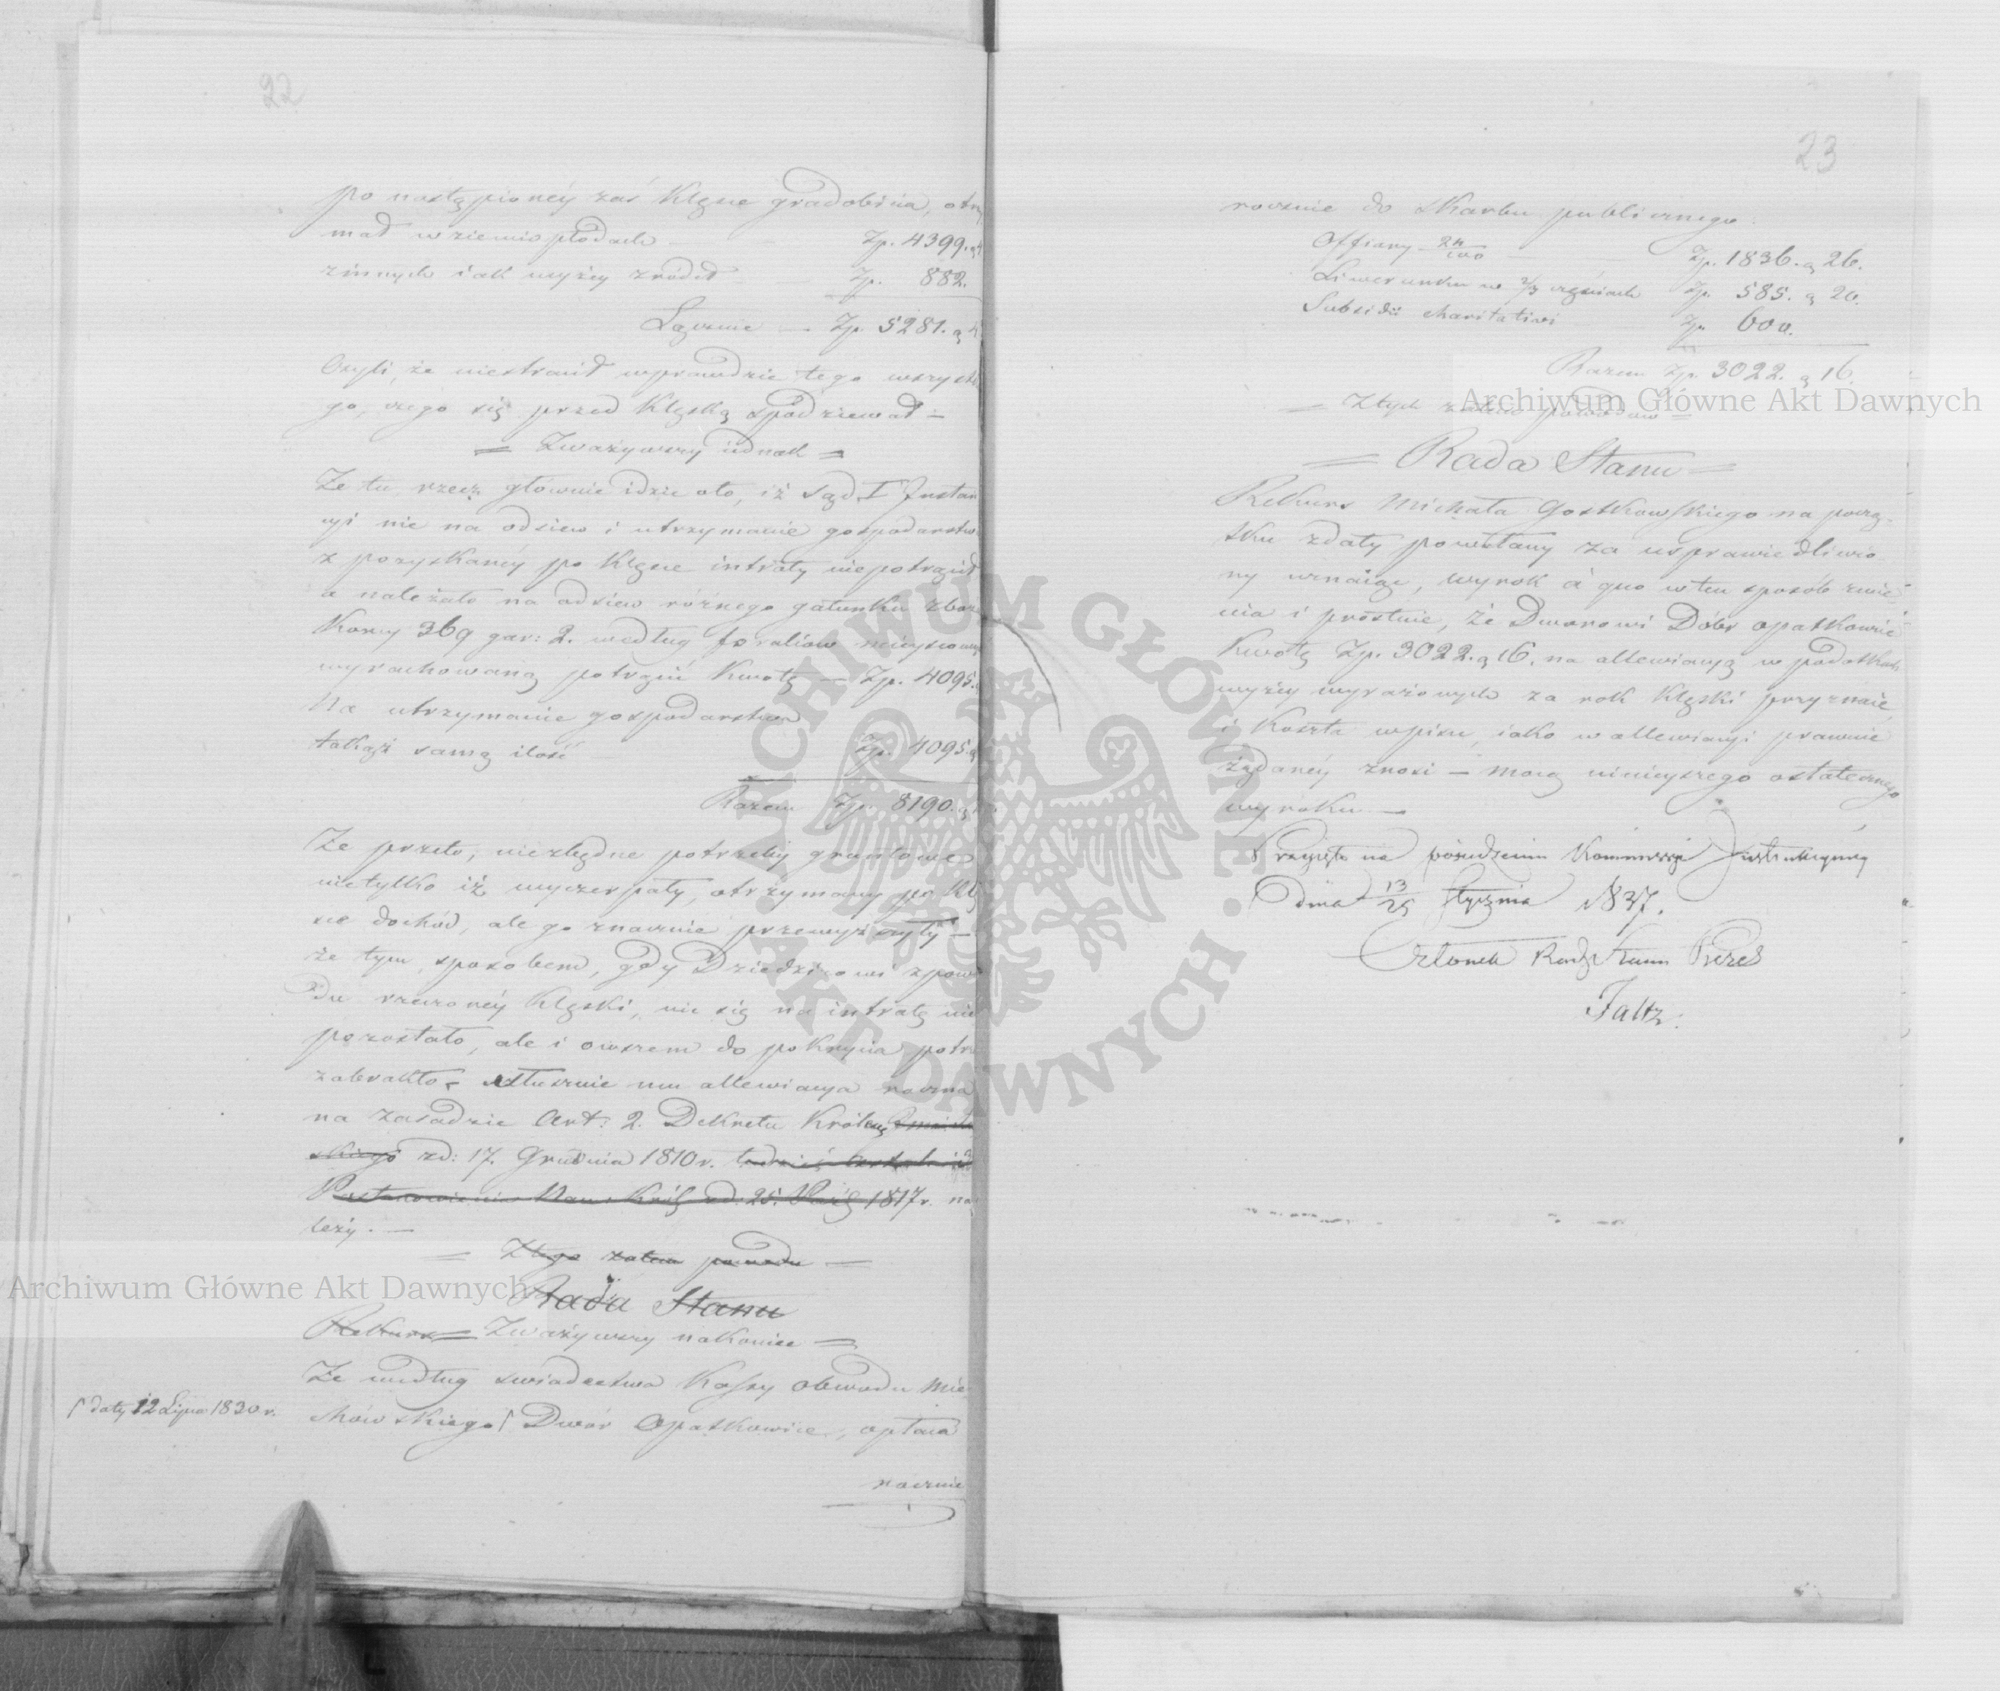 22
po nastąpionéy zaś Klęsce gradobicia, otrzy
mał w ziemiopłodach Zp. 4399. g
z innych iak wyżéy źródeł – Zp. 882.
Łącznie – Zp. 5281. g
Czyli, że niestracił wprawdzie tego wszystkie
go, czego się przed Klęską spodziewał –
= Zważywszy iednak =
Że tu, rzecz głównie idzie oto, iż Sąd I Instan
cyi nie na odsiew i utrzymanie gospodarstwa
z pozyskanéy po Klęsce intraty niepotrącił
a należało na odsiew różnego gatunku zboża
Korcy 369 gar: 2. według foraliów mieyscowych
wyrachowaną potrącić Kwotę – Zp. 4095.
Na utrzymanie gospodarstwa
takąż samą ilość Zp. 4095. g
Razem Zp. 8190. g
Że przeto, niezbędne potrzeby gruntowe
nietylko iż wyczerpały, otrzymany po Klę
sce dochód, ale go znacznie przewyższyły –
że tym sposobem, gdy Dziedzicowi z powo
du rzeczonéy Klęski, nic się na intratę nie
pozostało, ale i owszem do pokrycia potrz
zabrakło, słusznie mu allewiacya roczna
na zasadzie Art: 2. Dekretu Królew
skiego z d: 17. Grudnia 1810 r.
Postanowienia Nam: Król z d: 25. Paźd 1817 r. na
leży. –
= Z tego zatem powodu –
Rada Stanu
Rekurs = Zważywszy nakoniec =
Że według świadectwa Kassy obwodu Mie
chowskiego / Dwór Opatkowice, opłaca
/ daty 12 Lipca 1830 r.
rocznie
23
rocznie do Skarbu publicznego:
Offiary 24/100 – Zp. 1836. g 26.
Liwerunku w 2/3 częściach Zp. 585. g 20.
Subsidii charitativi Zp. 600.
Razem Zp. 3022. g 16.
= Z tych zatem powodów =
= Rada Stanu =
Rekurs Michała Gostkowskiego na począ-
tku z daty powołany za usprawiedliwio
ny uznaiąc, wyrok à quo w ten sposób zmie
nia i prostuie, że Dworowi Dóbr Opatkowic
Kwotę Zp. 3022. g 16. na allewiacyą w podatkach
wyżéy wyrażonych za rok Klęski przyznaie,
i Koszta wpisu, iako w allewiacyi prawnie
żądanéy znosi – mocą ninieyszego ostatecznego
wyroku –
Przyięto na posiedzeniu Kommissyi Instrukcyinéy
dnia 13/25 Stycznia 1837.
Członek Rady Stanu Prezes
Faltz.
Archiwum Główne Akt Dawnych
Archiwum Główne Akt Dawnych
ARCHIWUM GŁÓWNE
AKT DAWNYCH